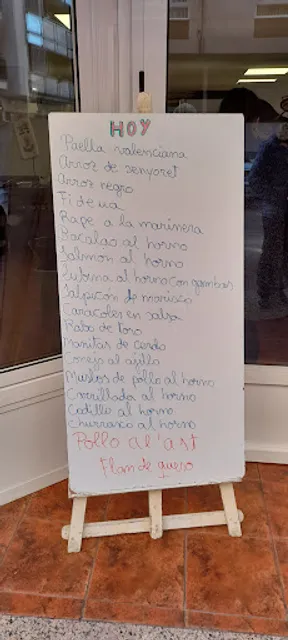 HOY
Paella valenciana
Arroz de senyoret
Arroz negro
Fideua
Rape a la marinera
Bacalao al horno
Salmon al horno
Lubina al horno con gambas
Salpicón de marisco
Caracoles en salsa
Rabo de toro
Manitas de cerdo
Conejo al ajillo
Muslos de pollo al horno
Costillada al horno
Codillo al horno
Churrasco al horno
Pollo al'ast
Flan de queso